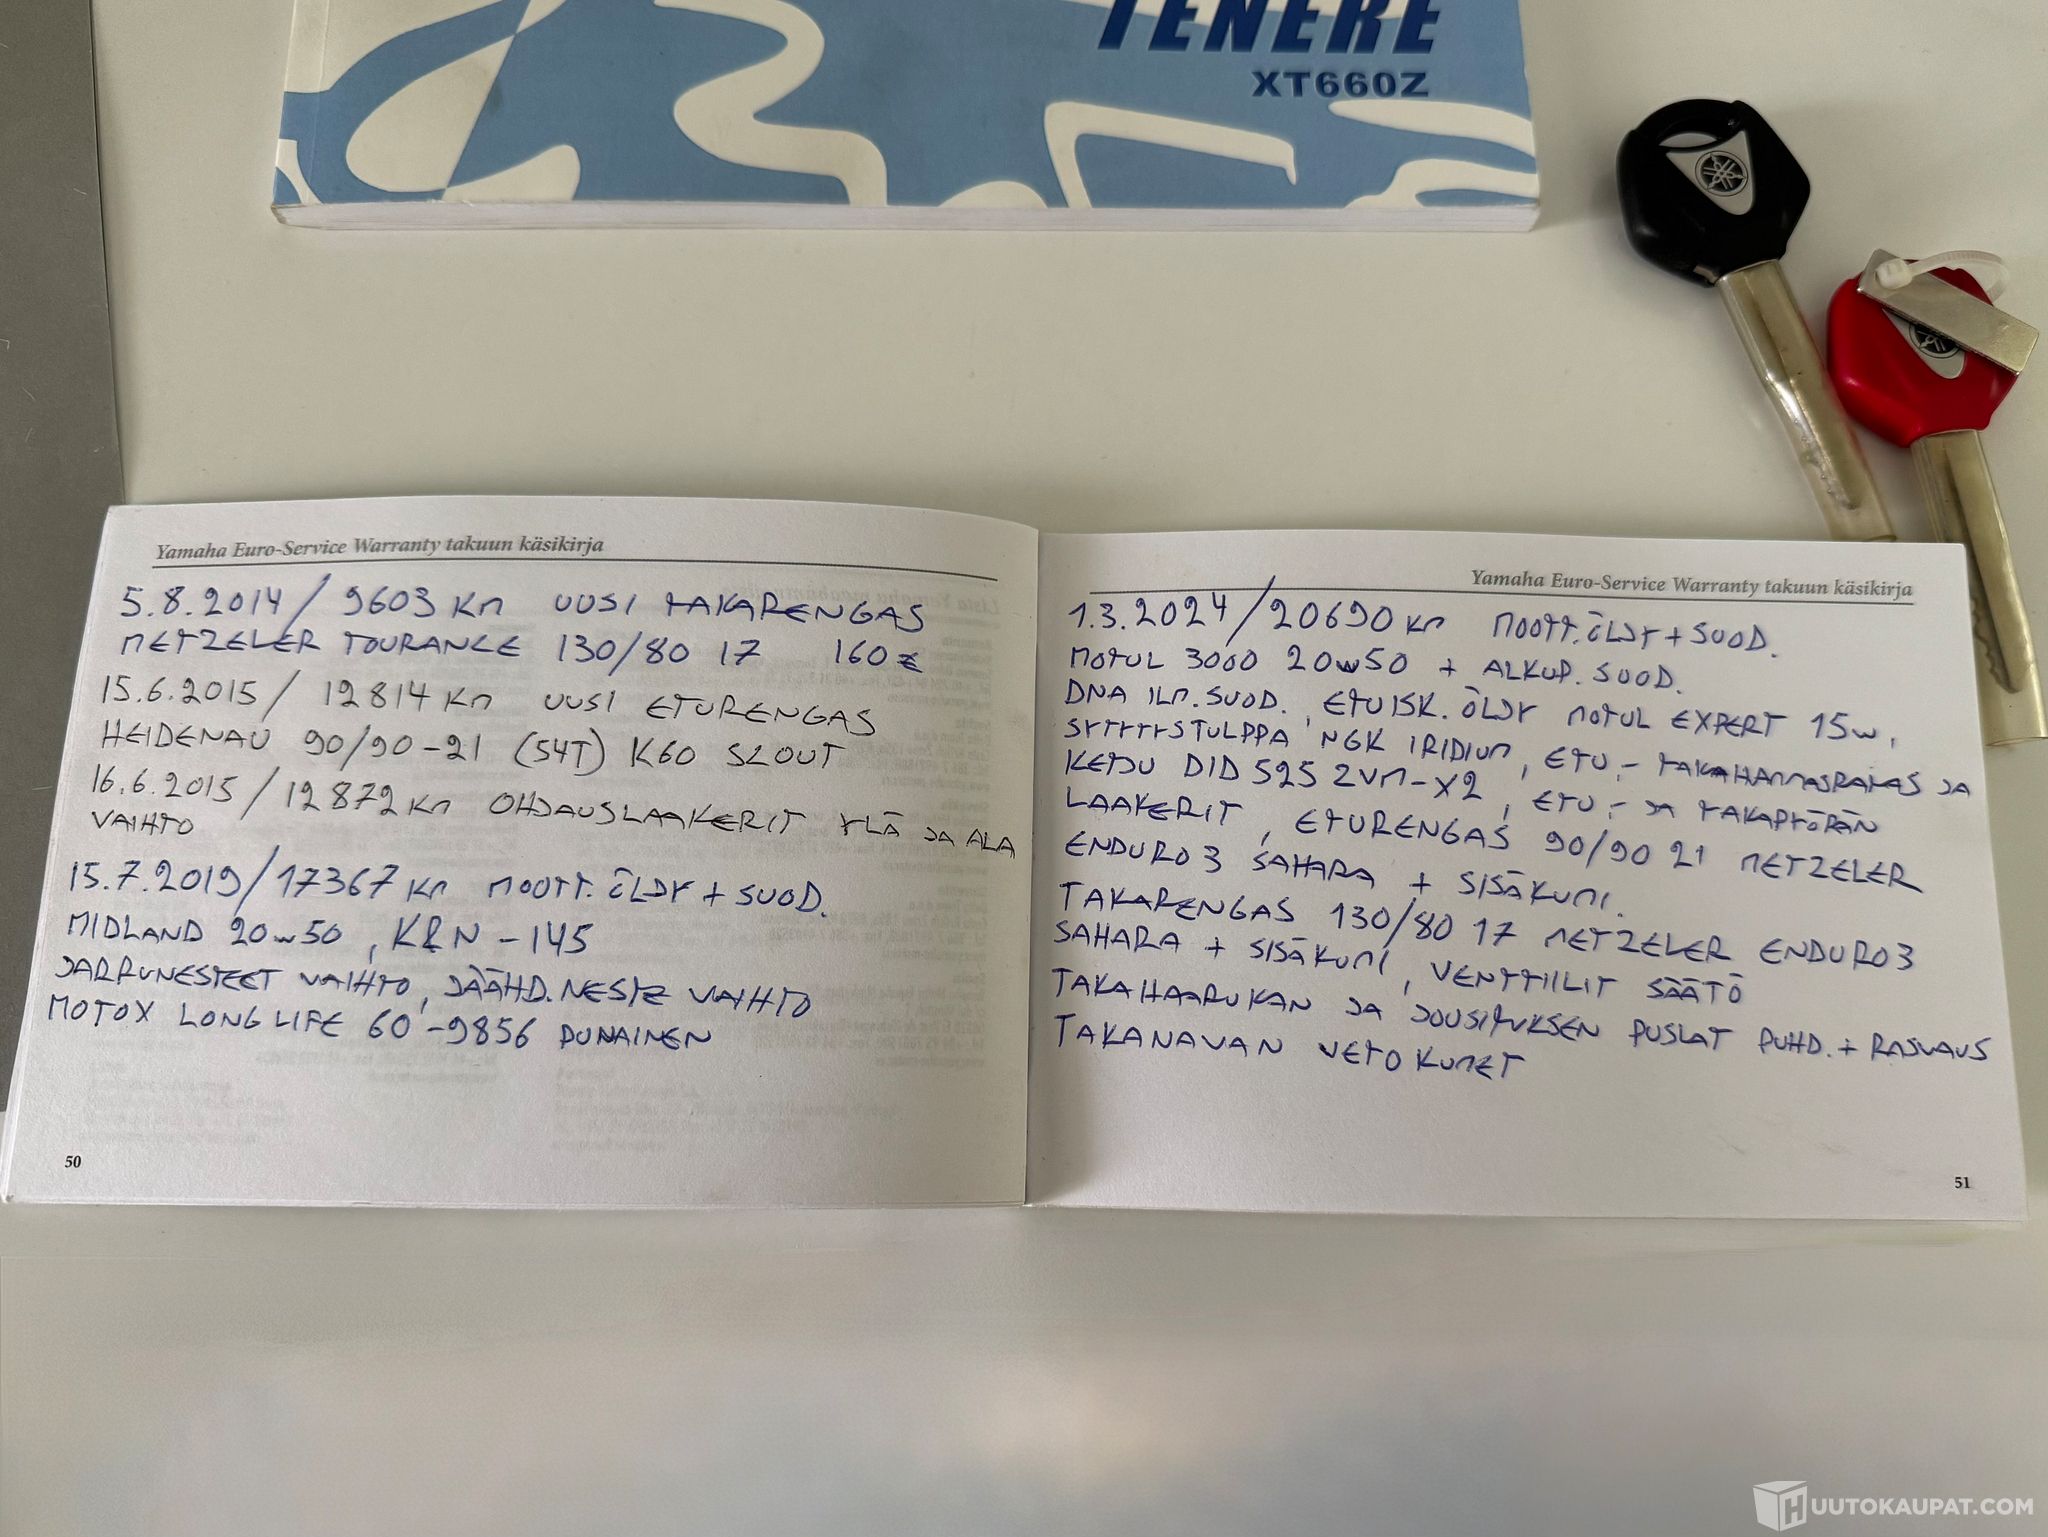 TENERE
XT660Z
Yamaha Euro-Service Warranty takuun käsikirja
5.8.2014 / 9603 KM UUSI TAKARENGAS
METZELER TOURANCE 130/80 17 160€
15.6.2015 / 12814 KM UUSI ETURENGAS
HEIDENAU 90/90-21 (54T) K60 SCOUT
16.6.2015 / 12872 KM OHJAUSLAAKERIT YLÄ JA ALA
VAIHTO
15.7.2019 / 17367 KM MOOTT. ÖLJY + SUOD.
MIDLAND 20W50, K&N -145
JARRUNESTEET VAIHTO, JÄÄHD.NESTE VAIHTO
MOTOX LONGLIFE 60 -9856 PUNAINEN
50
Yamaha Euro-Service Warranty takuun käsikirja
1.3.2024 / 20690 KM MOOTT.ÖLJY + SUOD.
MOTUL 3000 20W50 + ALKUP. SUOD.
DNA ILM.SUOD., ETUISK. ÖLJY MOTUL EXPERT 15W,
SYTYTYSTULPPA NGK IRIDIUM, ETU- TAKAHAMMASRATAS JA
KETJU DID 525 ZVM-X2, ETU- JA TAKAPYÖRÄN
LAAKERIT, ETURENGAS 90/90 21 METZELER
ENDURO 3 SAHARA + SISÄKUMI.
TAKARENGAS 130/80 17 METZELER ENDURO 3
SAHARA + SISÄKUMI, VENTTIILIT SÄÄTÖ
TAKAHAARUKAN JA JOUSITUKSEN PUSLAT PUHD. + RASVAUS
TAKANAVAN VETOKUMET
51
HUUTOKAUPAT.COM